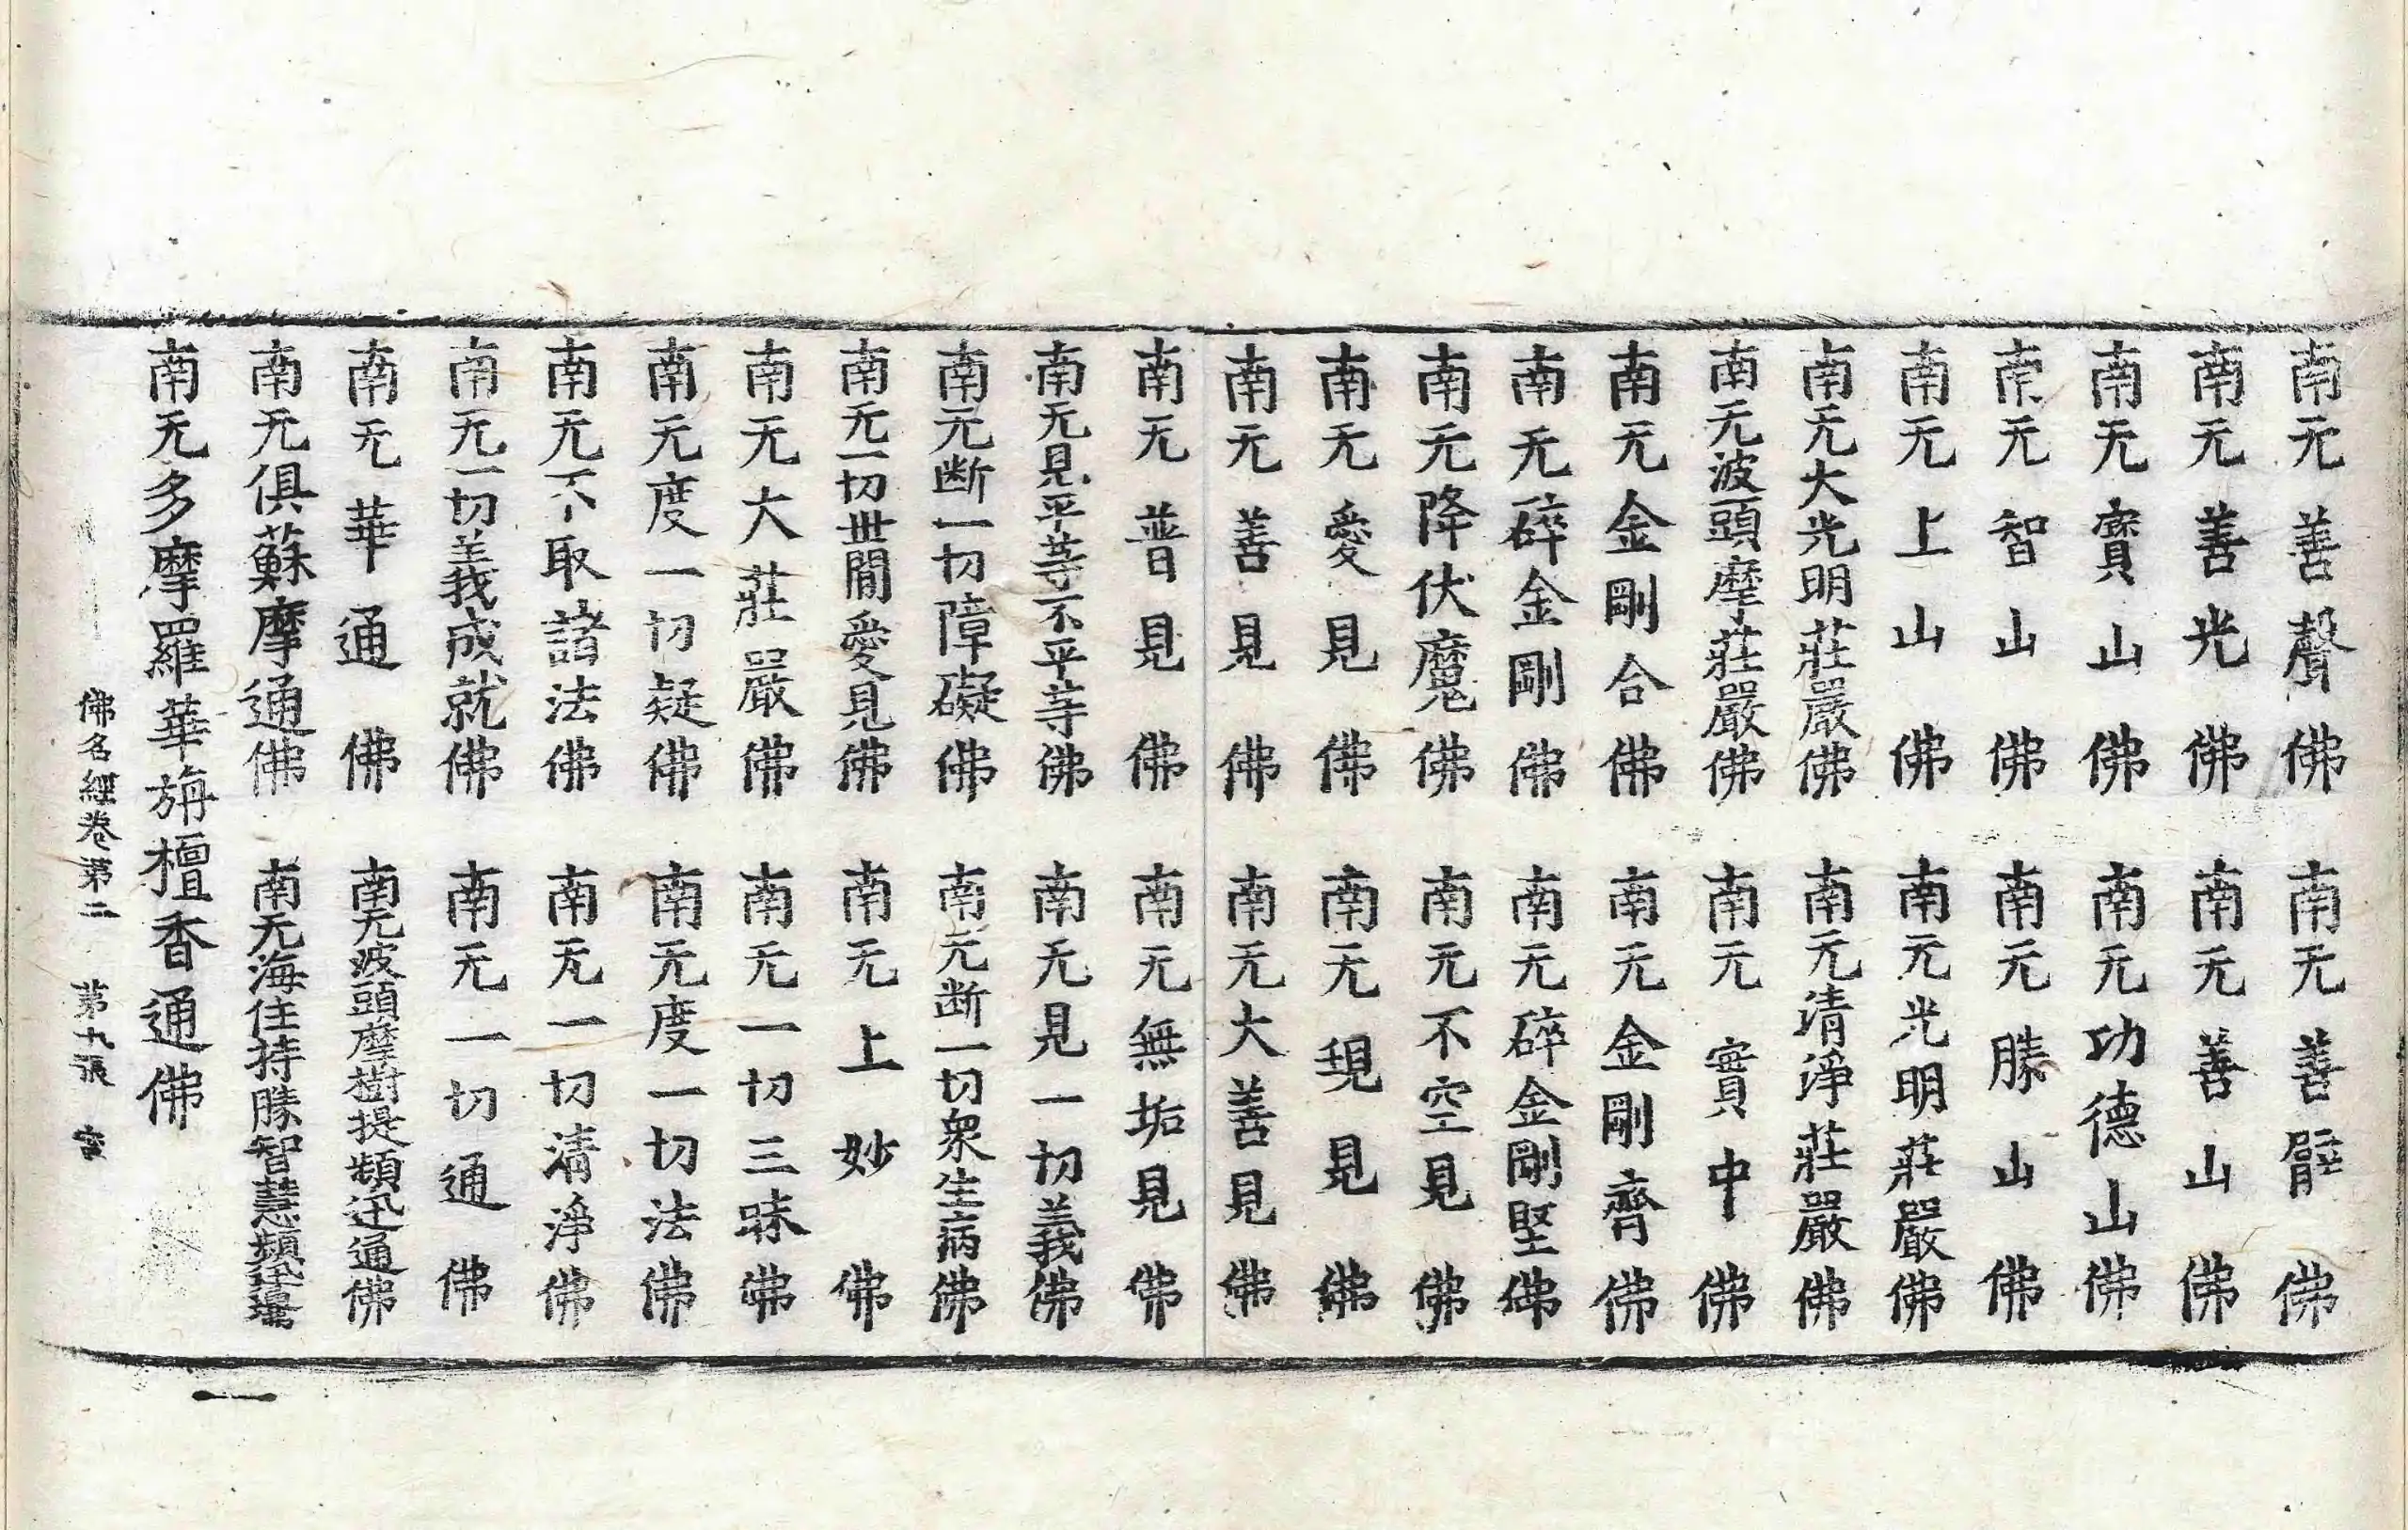 南无善聲佛　南无善臂佛
南无善光佛　南无善山佛
南无寶山佛　南无功德山佛
南无智山佛　南无勝山佛
南无上山佛　南无光明莊嚴佛
南无大光明莊嚴佛　南无清淨莊嚴佛
南无波頭摩莊嚴佛　南无實中佛
南无金剛合佛　南无金剛齊佛
南无碎金剛佛　南无碎金剛堅佛
南无降伏魔佛　南无不空見佛
南无愛見佛　南无現見佛
南无善見佛　南无大善見佛
南无普見佛　南无無垢見佛
南无見平等不平等佛　南无見一切義佛
南无断一切障礙佛　南无断一切衆生病佛
南无一切世閒愛見佛　南无上妙佛
南无大莊嚴佛　南无一切三昧佛
南无度一切疑佛　南无度一切法佛
南无不取諸法佛　南无一切清淨佛
南无一切義成就佛　南无一切通佛
南无華通佛　南无波頭摩樹提頻迅通佛
南无俱蘇摩通佛　南无海住持勝智慧
南无多摩羅華旃檀香通佛
佛名經卷第二　第九張